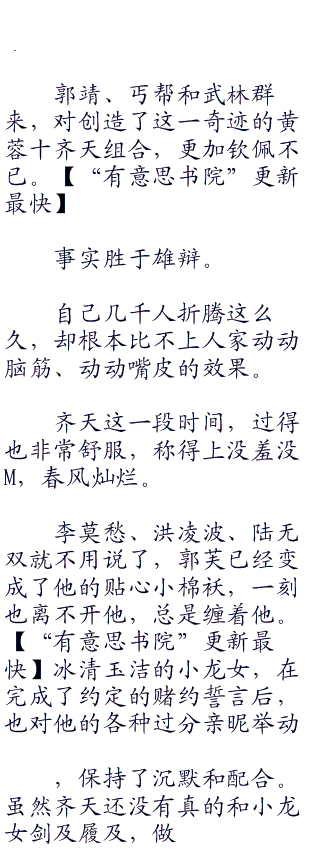 郭靖、丐帮和武林群
来，对创造了这一奇迹的黄
蓉十齐天组合，更加钦佩不
已。【“有意思书院”更新
最快】
事实胜于雄辩。
自己几千人折腾这么
久，却根本比不上人家动动
脑筋、动动嘴皮的效果。
齐天这一段时间，过得
也非常舒服，称得上没羞没
M，春风灿烂。
李莫愁、洪凌波、陆无
双就不用说了，郭芙已经变
成了他的贴心小棉袄，一刻
也离不开他，总是缠着他。
【“有意思书院”更新最
快】冰清玉洁的小龙女，在
完成了约定的赌约誓言后，
也对他的各种过分亲昵举动
，保持了沉默和配合。
虽然齐天还没有真的和小龙
女剑及履及，做